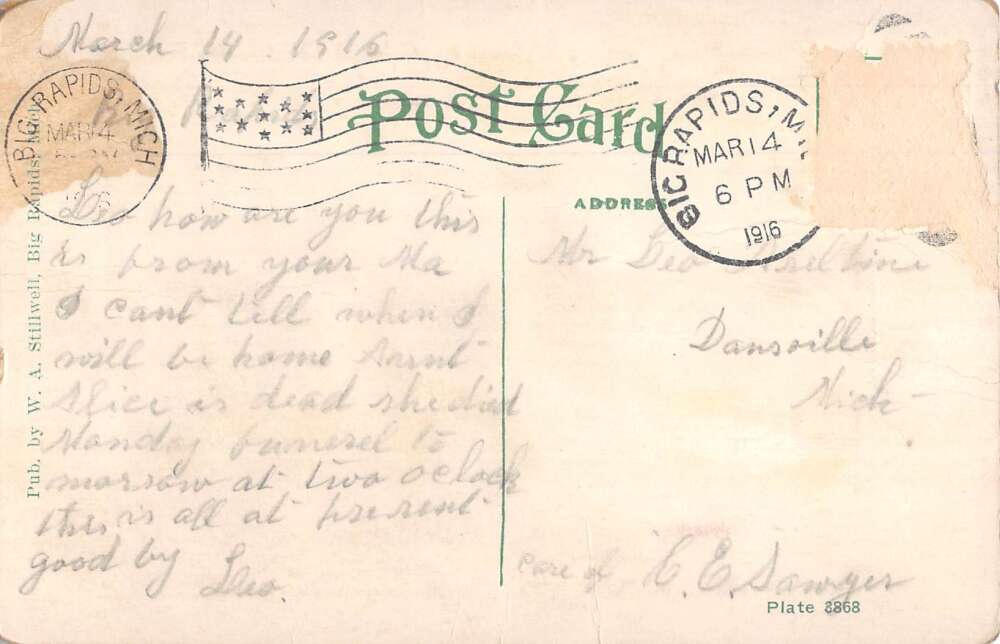 March 14 1916
BIG RAPIDS, MICH
MAR 14
Post Card
BIG RAPIDS, M
MAR 14
6 PM
1916
Pub. by W. A. Stillwell, Big Rapids, Mich.
Leo how are you this
is from your Ma
I cant tell when I
will be home Aunt
Alice is dead she died
Monday funerel to
morrow at two oclock
this is all at present
good by Leo.
ADDRESS
Mr Leo
Dansville
Mich
care of C. E. Sawyer
Plate 3868